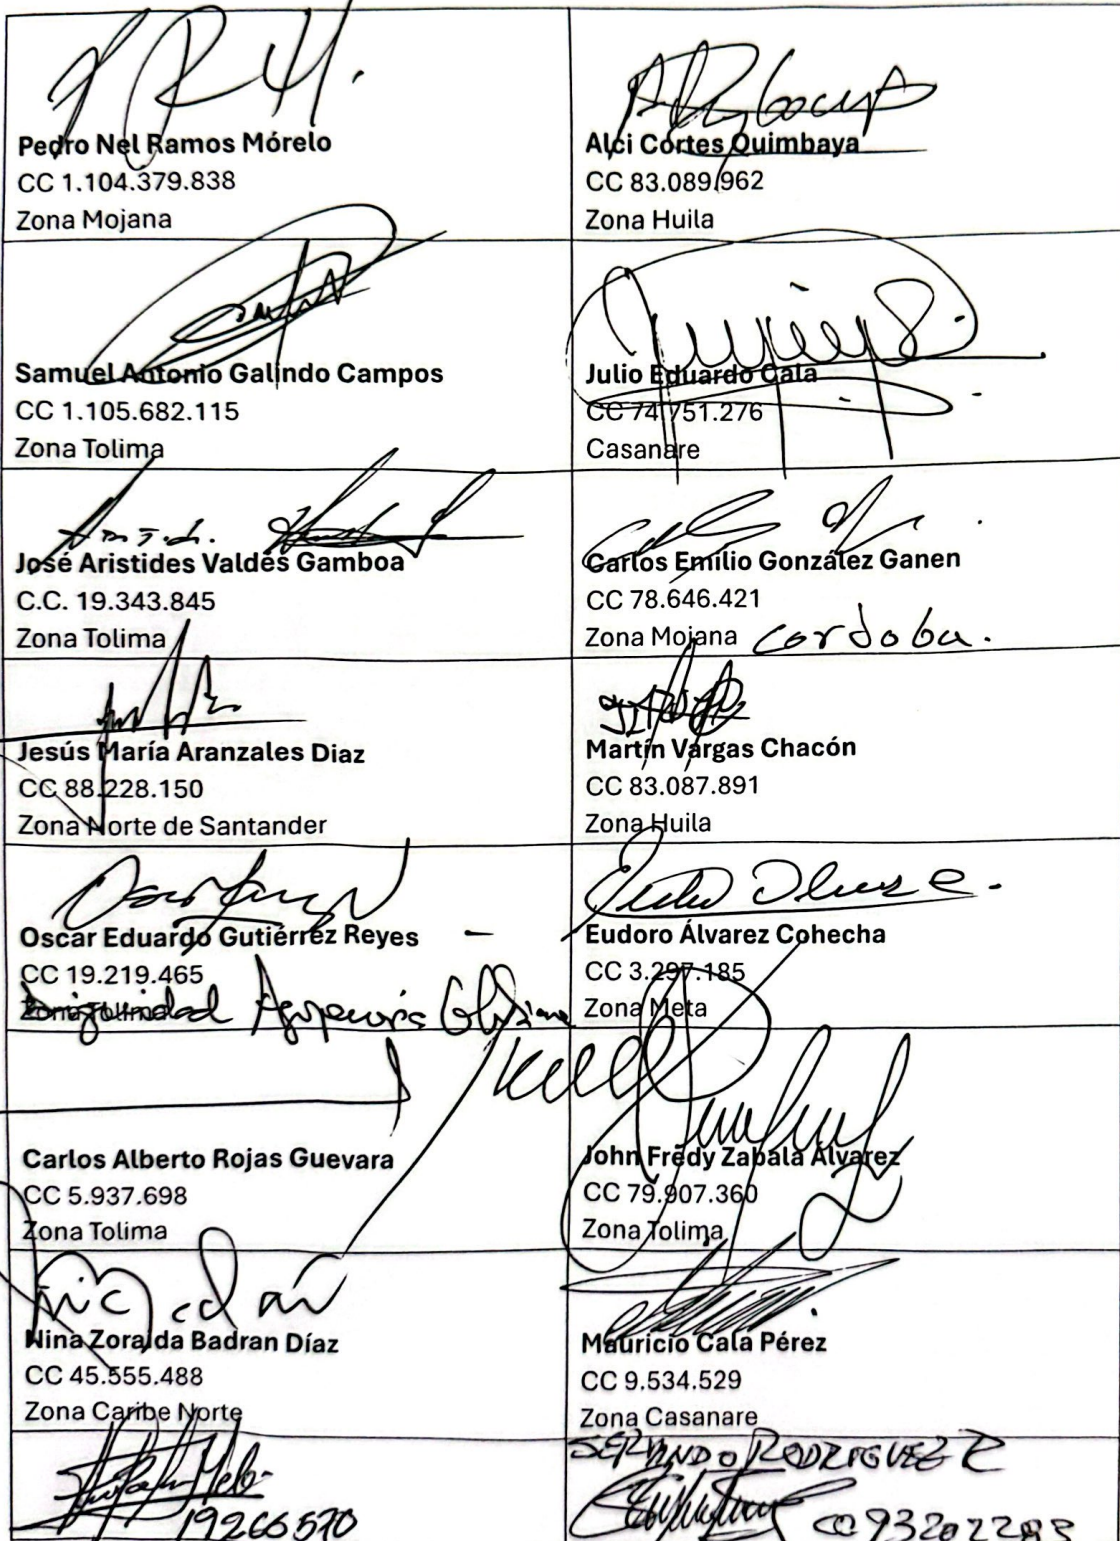 Pedro Nel Ramos Mórelo
CC 1.104.379.838
Zona Mojana
Alci Cortes Quimbaya
CC 83.089.962
Zona Huila
Samuel Antonio Galindo Campos
CC 1.105.682.115
Zona Tolima
Julio Eduardo Cala
CC 74.751.276
Casanare
José Aristides Valdés Gamboa
C.C. 19.343.845
Zona Tolima
Carlos Emilio González Ganen
CC 78.646.421
Zona Mojana cordoba.
Jesús María Aranzales Diaz
CC 88.228.150
Zona Norte de Santander
Martín Vargas Chacón
CC 83.087.891
Zona Huila
Oscar Eduardo Gutiérrez Reyes
CC 19.219.465
Zona Tolima Dignidad
Eudoro Álvarez Cohecha
CC 3.297.185
Zona Meta
Carlos Alberto Rojas Guevara
CC 5.937.698
Zona Tolima
John Fredy Zabala Álvarez
CC 79.907.360
Zona Tolima
Nina Zoraida Badran Díaz
CC 45.555.488
Zona Caribe Norte
Mauricio Cala Pérez
CC 9.534.529
Zona Casanare
19266570
RODRIGUEZ R